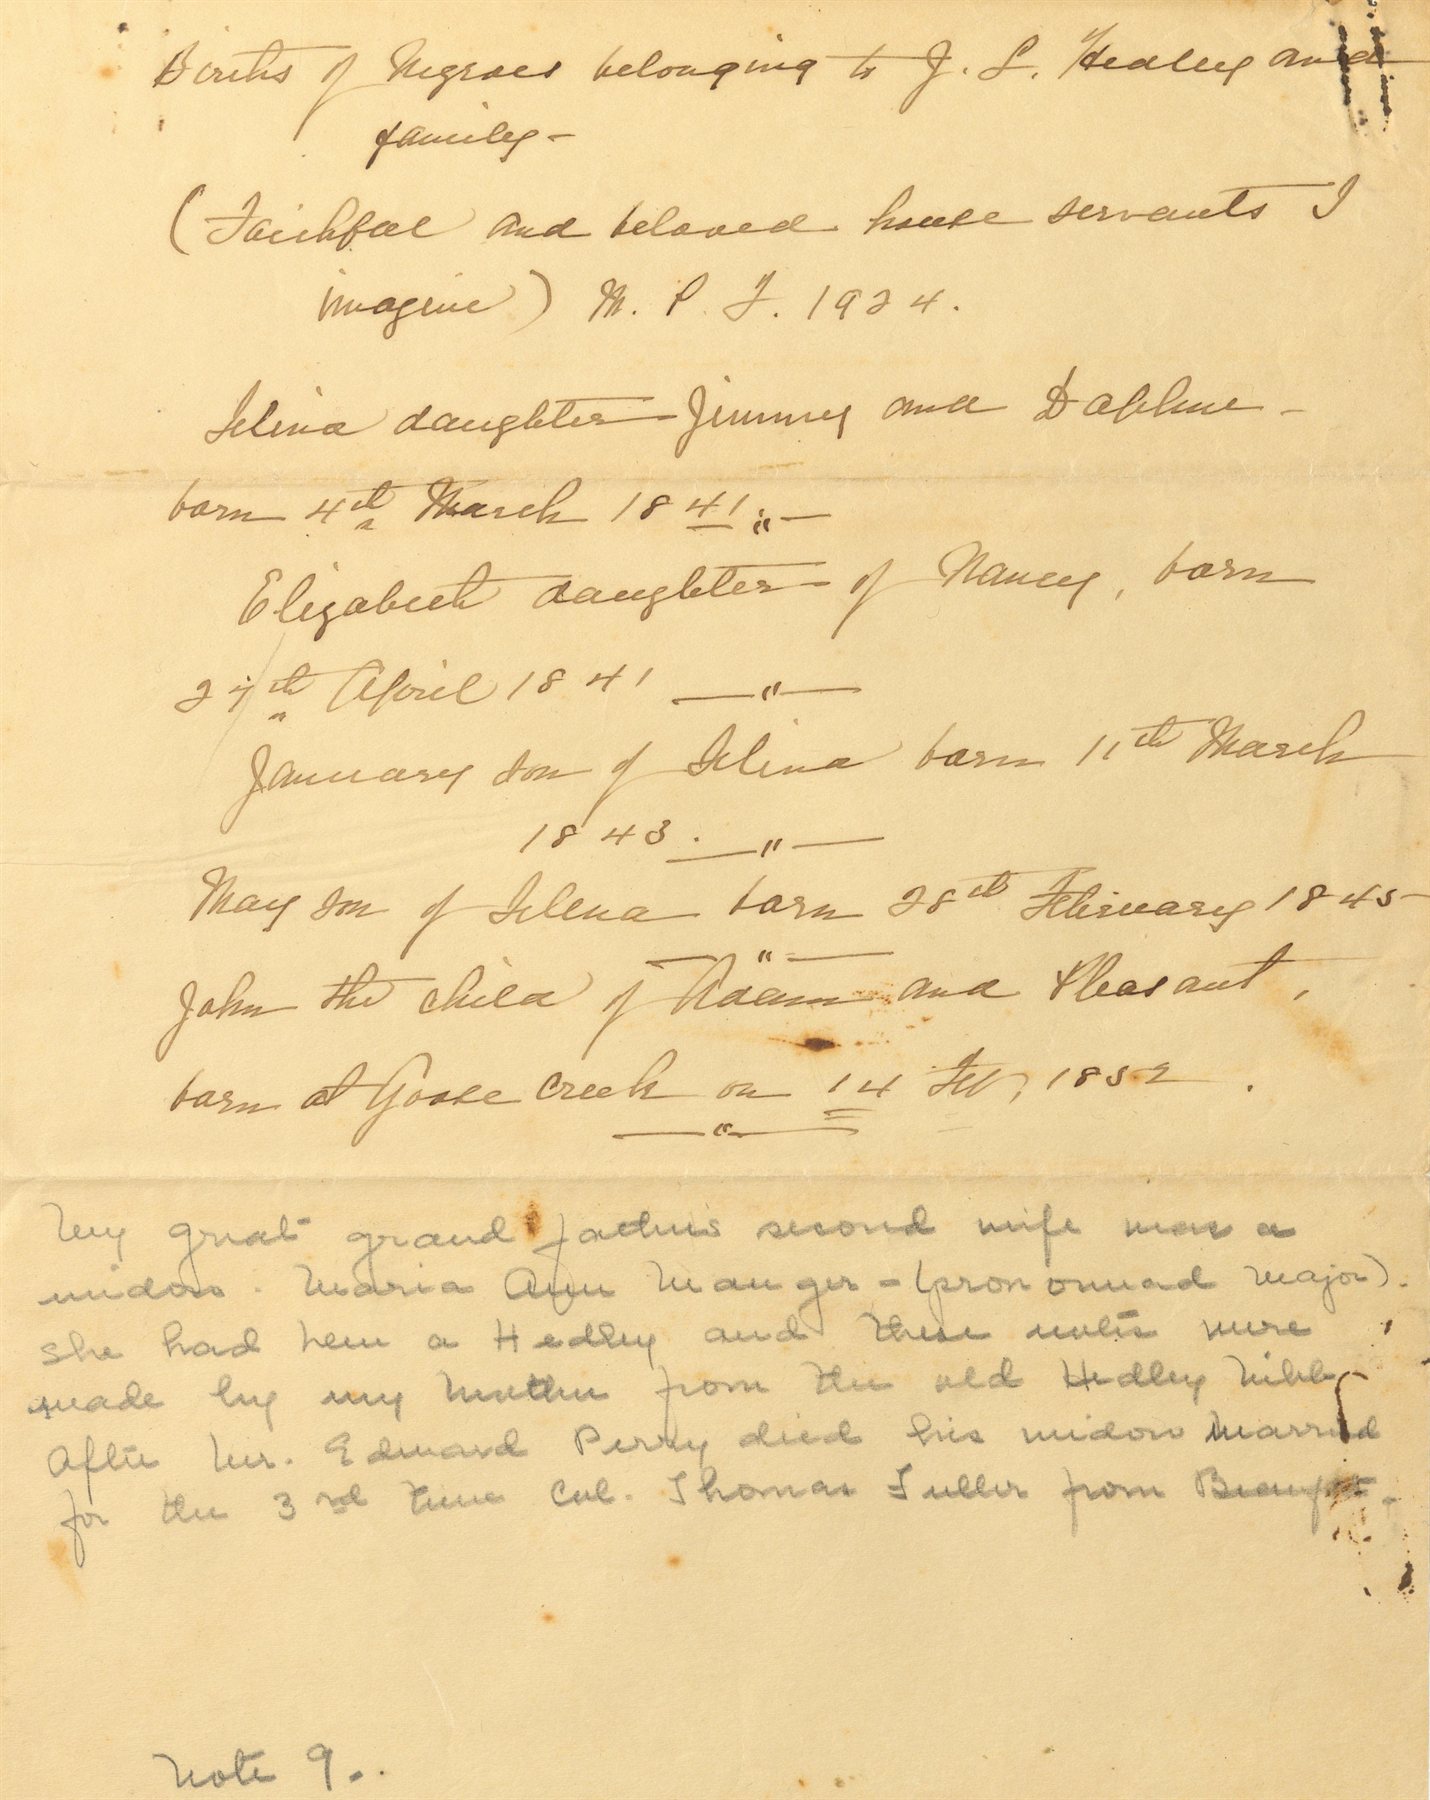 Births of Negroes belonging to J. L. Hedley and
family -
(Faithful and beloved house servants I
imagine) M. P. F. 1924.
Selina daughter Jimmy and Daphne -
born 4th March 1841. " -
Elizabeth daughter of Nancy, born
27th April 1841 — " —
January son of Selina born 11th March
1843. — " —
May son of Selena born 28th February 1845 -
— " —
John the child of Adam and Pleasant,
born at Goose Creek on 14 Feb, 1852.
— " —
My great grand father's second wife was a
widow. Maria Ann Mauger - (pronounced Major).
She had been a Hedley and these notes were
made by my mother from the old Hedley Bible
After Mr. Edward Perry died his widow married
for the 3rd time Col. Thomas Fuller from Beaufort -
Note 9..